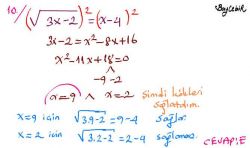 Bayçelebi
10./ (√3x-2)² = (x-4)²
3x-2 = x²-8x+16
x²-11x+18=0
-9 -2
x=9 ∧ x=2 Şimdi kökleri
sağlatalım.
x=9 için √3.9-2 = 9-4 sağlar.
x=2 için √3.2-2 = 2-4 sağlamaz.
CEVAP: E